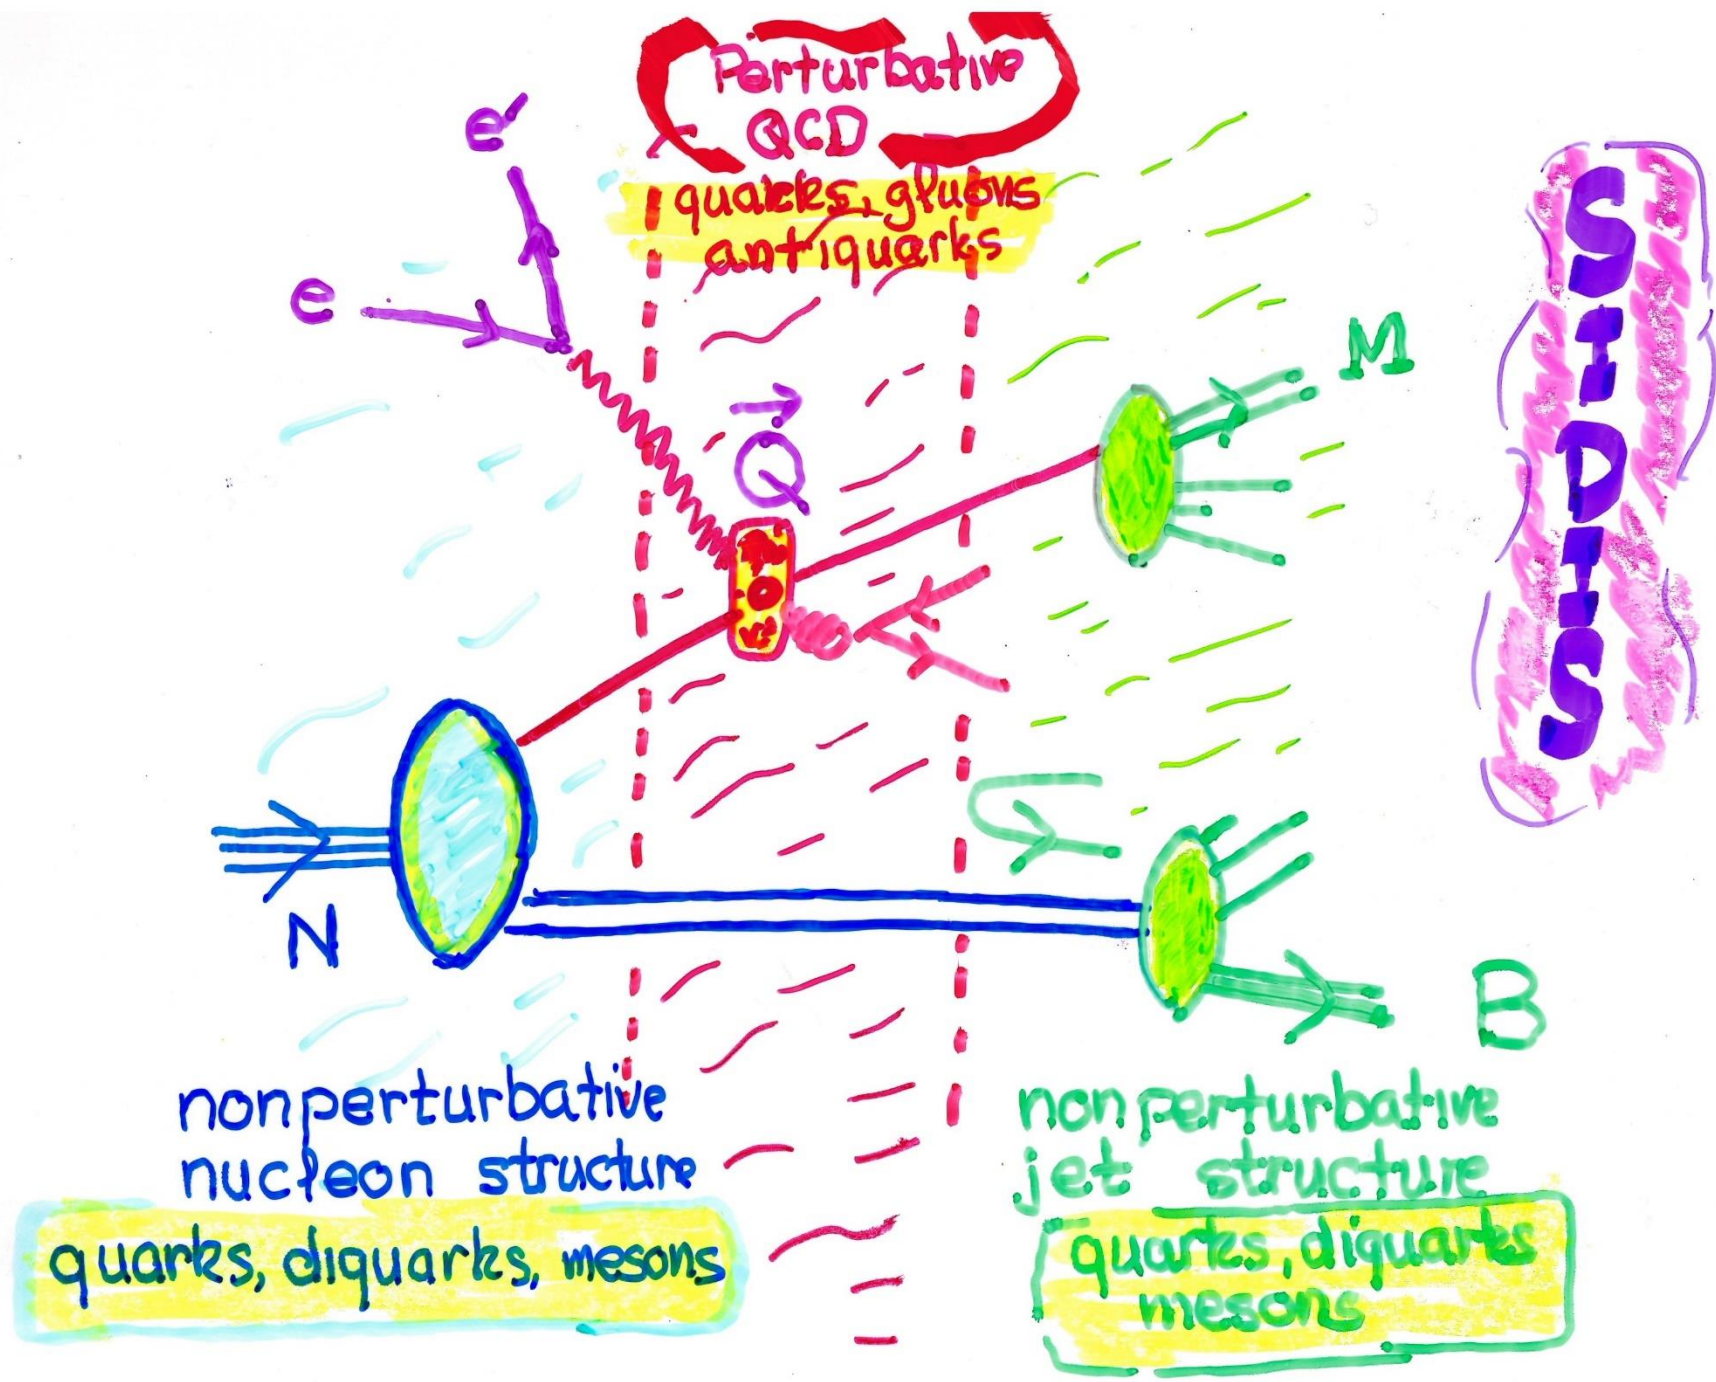 Perturbative
QCD
quarks, gluons
antiquarks
e'
e
Q
M
N
B
SIDIS
nonperturbative
nucleon structure
quarks, diquarks, mesons
nonperturbative
jet structure
quarks, diquarks
mesons